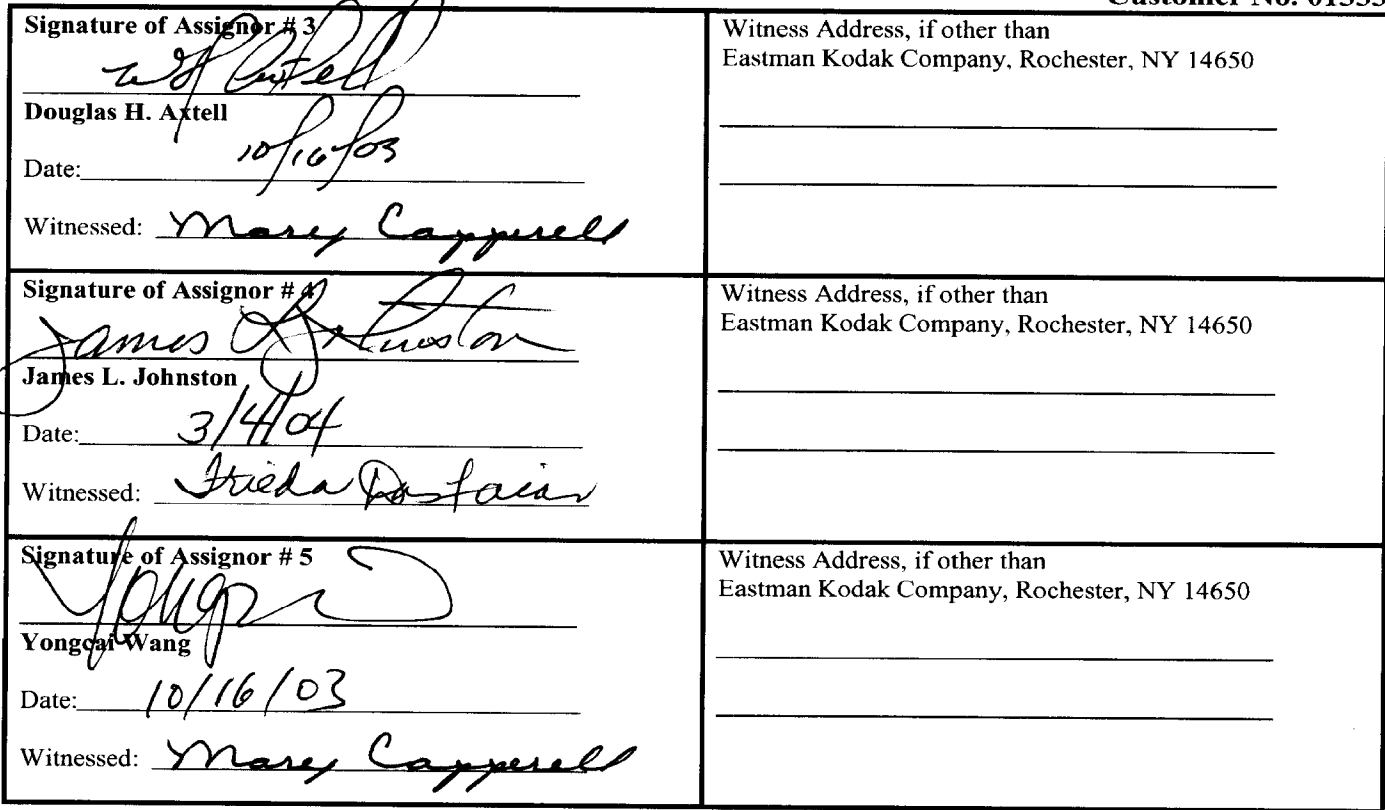 Customer No. 01333
Signature of Assignor # 3
Douglas H. Axtell
Date: 10/16/03
Witnessed: Mary Capperell
Witness Address, if other than
Eastman Kodak Company, Rochester, NY 14650
Signature of Assignor # 4
James L Johnston
James L. Johnston
Date: 3/4/04
Witnessed: Frieda
Witness Address, if other than
Eastman Kodak Company, Rochester, NY 14650
Signature of Assignor # 5
Yongcai Wang
Date: 10/16/03
Witnessed: Mary Capperell
Witness Address, if other than
Eastman Kodak Company, Rochester, NY 14650